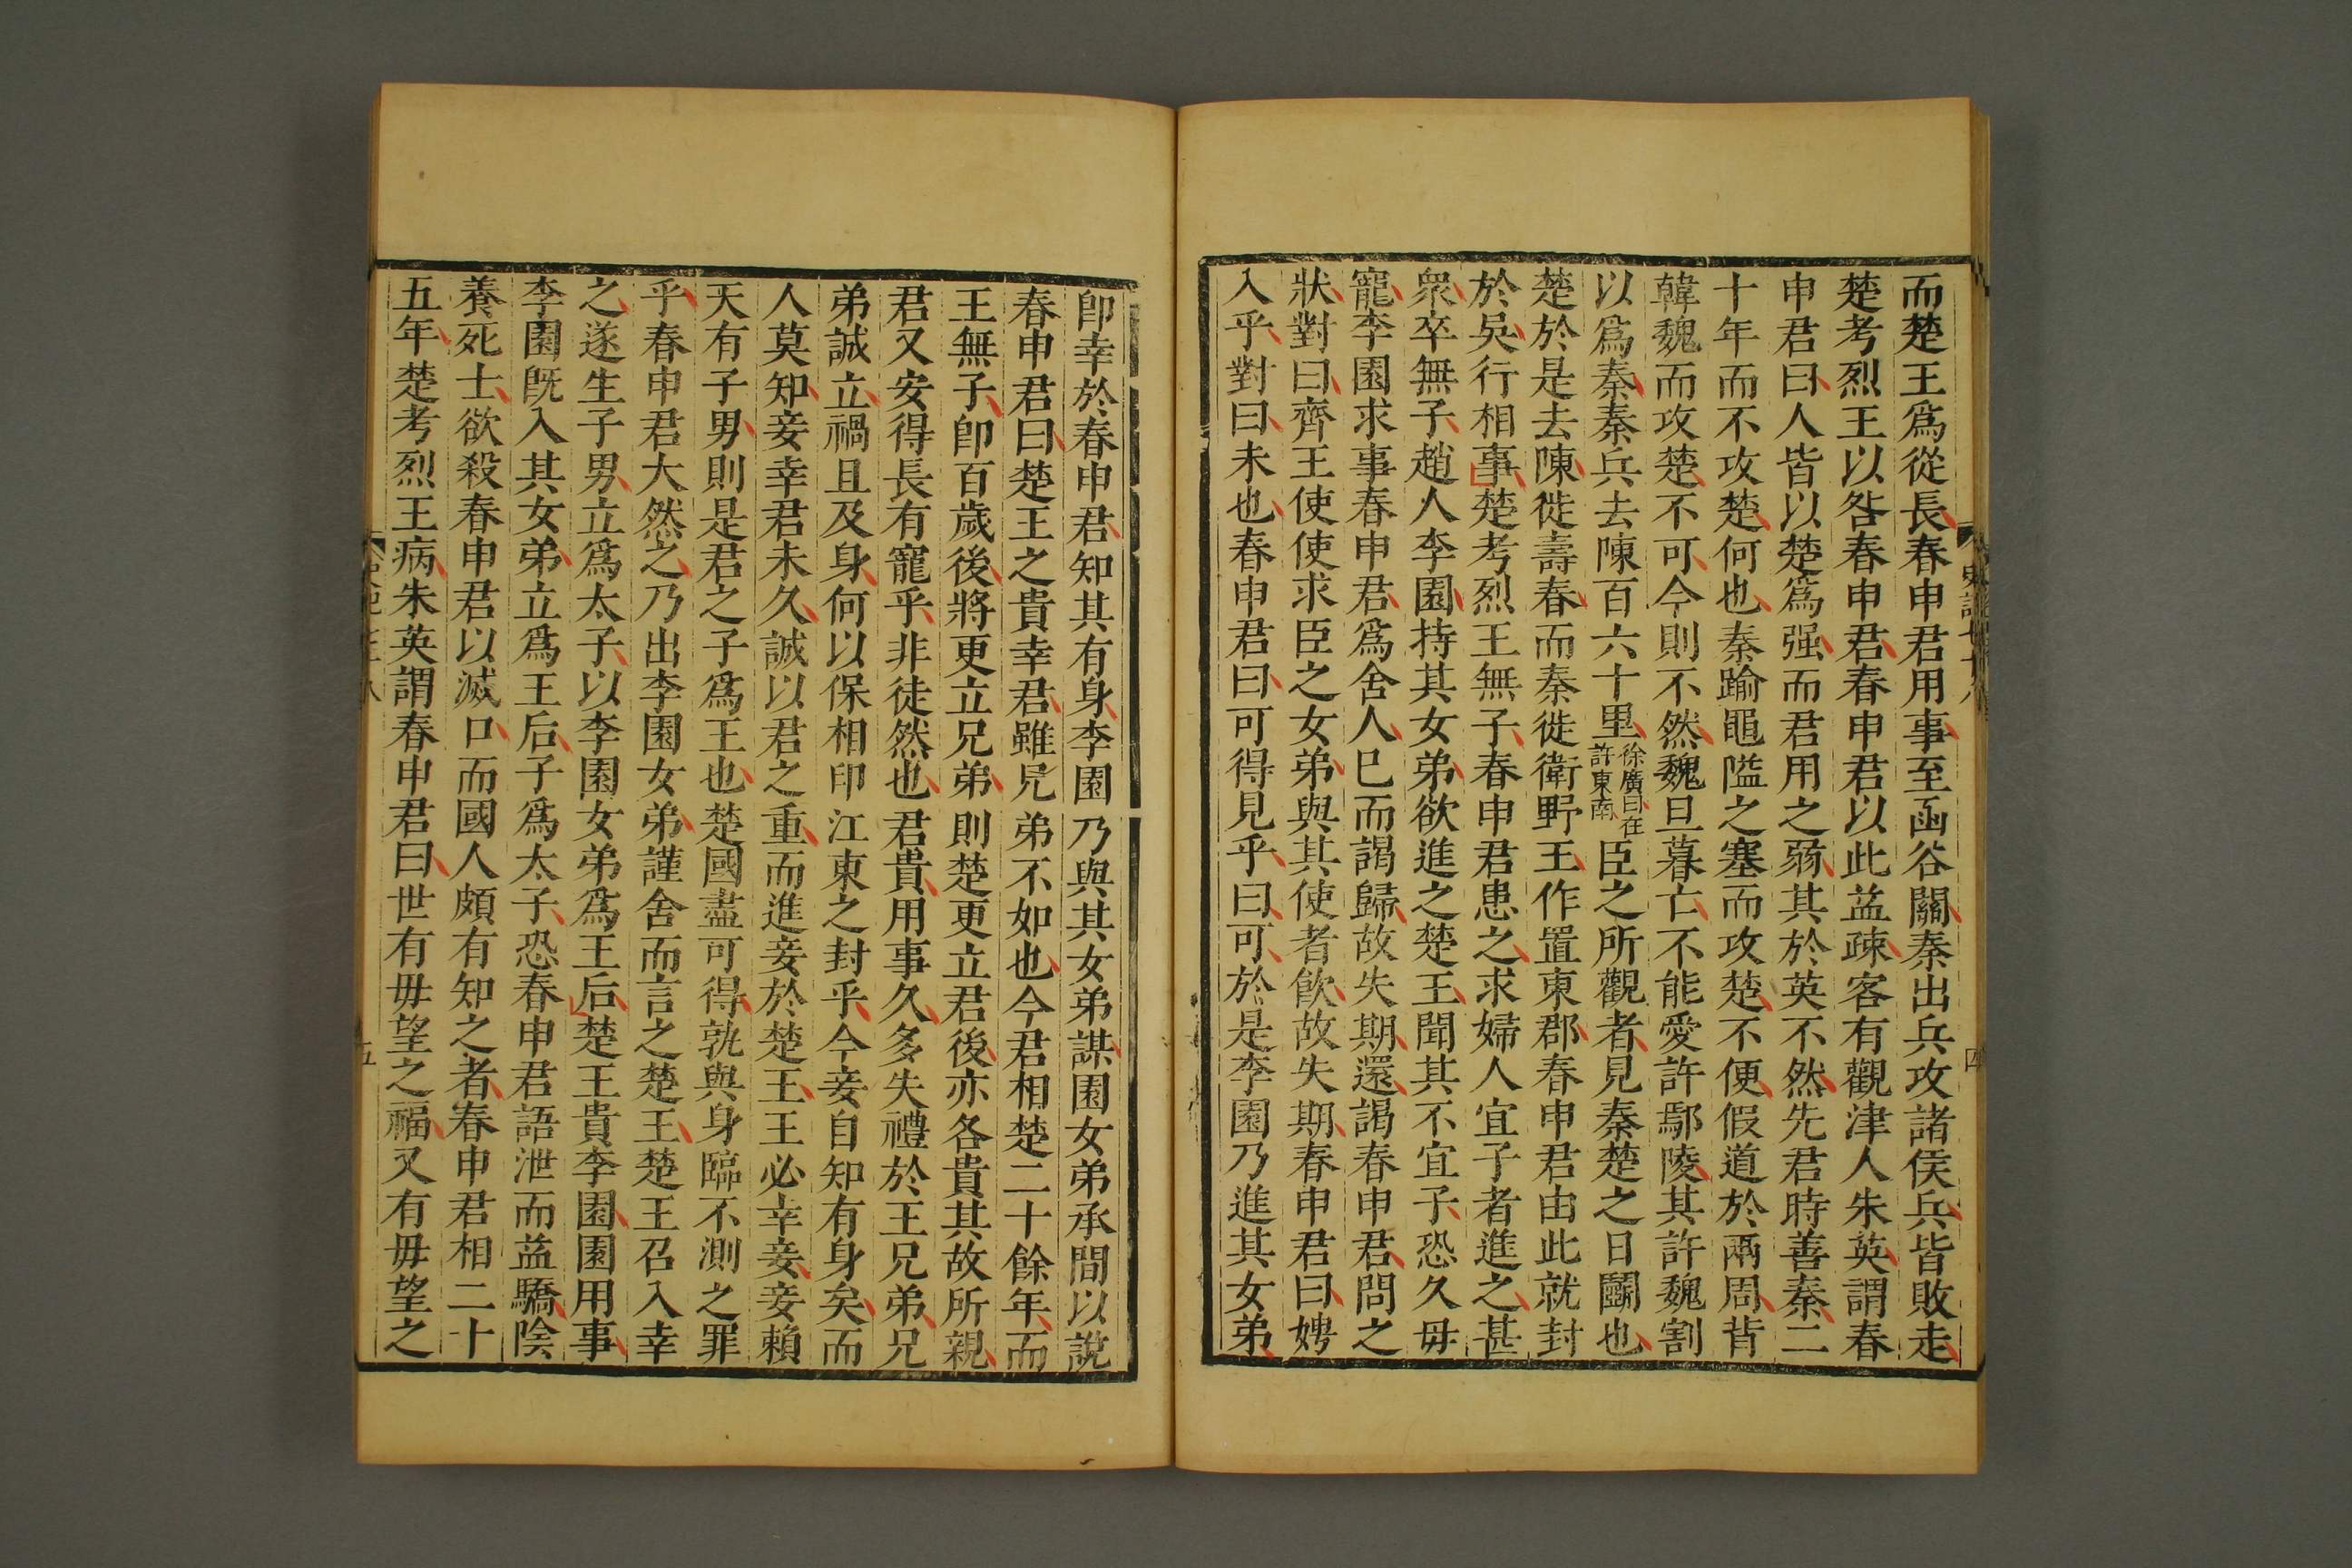 而楚王爲從長春申君用事至函谷關秦出兵攻諸侯兵皆敗走
楚考烈王以咎春申君春申君以此益疎客有觀津人朱英謂春
申君曰人皆以楚爲强而君用之弱其於英不然先君時善秦二
十年而不攻楚何也秦踰黽隘之塞而攻楚不便假道於兩周背
韓魏而攻楚不可今則不然魏旦暮亡不能愛許鄢陵其許魏割
以爲秦秦兵去陳百六十里徐廣曰在許東南臣之所觀者見秦楚之日鬬也
楚於是去陳徙壽春而秦徙衛野王作置東郡春申君由此就封
於吳行相事楚考烈王無子春申君患之求婦人宜子者進之甚
衆卒無子趙人李園持其女弟欲進之楚王聞其不宜子恐久毋
寵李園求事春申君爲舍人已而謁歸故失期還謁春申君問之
狀對曰齊王使使求臣之女弟與其使者飲故失期春申君曰娉
入乎對曰未也春申君曰可得見乎曰可於是李園乃進其女弟
史記七十八
四
卽幸於春申君知其有身李園乃與其女弟謀園女弟承間以說
春申君曰楚王之貴幸君雖兄弟不如也今君相楚二十餘年而
王無子卽百歲後將更立兄弟則楚更立君後亦各貴其故所親
君又安得長有寵乎非徒然也君貴用事久多失禮於王兄弟兄
弟誠立禍且及身何以保相印江東之封乎今妾自知有身矣而
人莫知妾幸君未久誠以君之重而進妾於楚王王必幸妾妾賴
天有子男則是君之子爲王也楚國盡可得孰與身臨不測之罪
乎春申君大然之乃出李園女弟謹舍而言之楚王楚王召入幸
之遂生子男立爲太子以李園女弟爲王后楚王貴李園園用事
李園旣入其女弟立爲王后子爲太子恐春申君語泄而益驕陰
養死士欲殺春申君以滅口而國人頗有知之者春申君相二十
五年楚考烈王病朱英謂春申君曰世有毋望之福又有毋望之
五